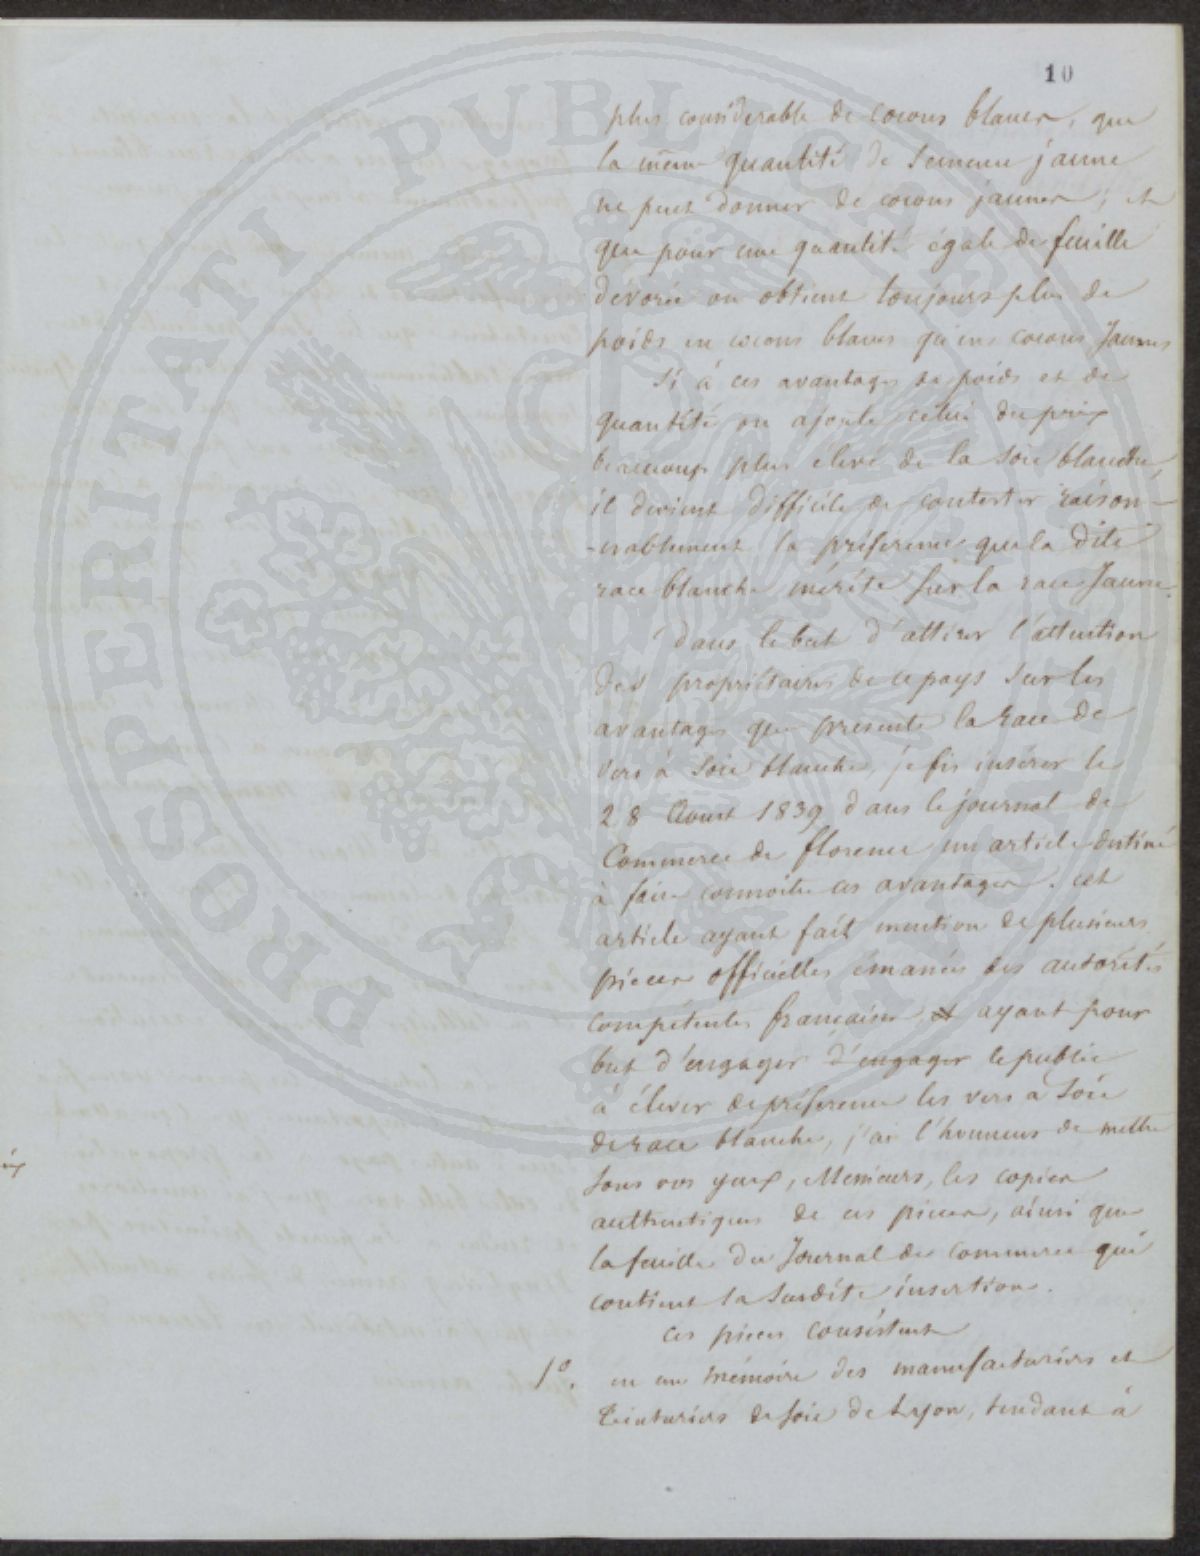 10
plus considerable de cocons blancs, que
la même quantité de semence jaune
ne peut donner de cocons jaunes; et
que pour une quantité égale de feuille
dévorée on obtient toujours plus de
poids en cocons blancs qu'en cocons Jaunes
Si à ces avantages de poids et de
quantité on ajoute celui du prix
beaucoup plus élevé de la Soie blanche,
il devient difficile de contester raison-
-nablement la préférence que la dite
race blanche mérite sur la race Jaune.
Dans le but d'attirer l'attention
des propriétaires de ce pays sur les
avantages que présente la race de
vers à Soie blanche, je fis insérer le
28 Aoust 1839 dans le journal de
Commerce de florence un article destiné
à faire connoitre ces avantages. cet
article ayant fait mention de plusieurs
pièces officielles émanées des autorités
compétentes françaises et ayant pour
but d'engager d'engager le public
à élever de préférence les vers à Soie
de race blanche, j'ai l'honneur de mettre
sous vos yeux, Messieurs, les copies
authentiques de ces pièces, ainsi que
la feuille du Journal de commerce qui
contient la Susdite insertion.
Ces pièces consistent
1º. en un mémoire des manufacturiers et
teinturiers de soie de Lyon, tendant à
PROSPERITATI PUBLICAE AUGENDAE